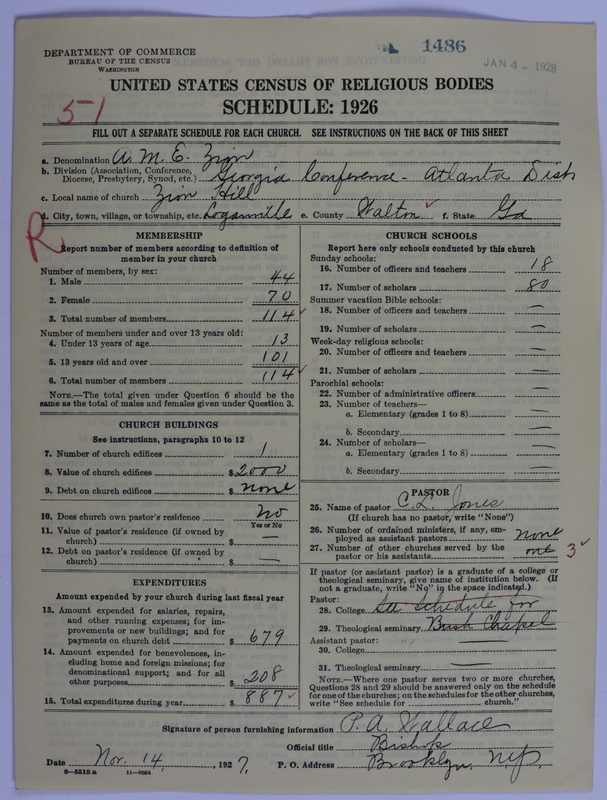 DEPARTMENT OF COMMERCE
BUREAU OF THE CENSUS
WASHINGTON
1486
JAN 4 - 1928
UNITED STATES CENSUS OF RELIGIOUS BODIES
SCHEDULE: 1926
51
FILL OUT A SEPARATE SCHEDULE FOR EACH CHURCH. SEE INSTRUCTIONS ON THE BACK OF THIS SHEET
a. Denomination A. M. E. Zion
b. Division (Association, Conference, Diocese, Presbytery, Synod, etc.) Georgia Conference - Atlanta Dist
c. Local name of church Zion Hill
d. City, town, village, or township, etc. Loganville e. County Walton f. State Ga
R
MEMBERSHIP
Report number of members according to definition of
member in your church
Number of members, by sex:
1. Male 44
2. Female 70
3. Total number of members 114
Number of members under and over 13 years old:
4. Under 13 years of age 13
5. 13 years old and over 101
6. Total number of members 114
NOTE.—The total given under Question 6 should be
same as the total of males and females given under Question 3.
CHURCH BUILDINGS
See instructions, paragraphs 10 to 12
7. Number of church edifices 1
8. Value of church edifices $2000
9. Debt on church edifices $ none
10. Does church own pastor's residence no
Yes or No
11. Value of pastor's residence (if owned by
church) $ —
12. Debt on pastor's residence (if owned by
church) $ —
EXPENDITURES
Amount expended by church during last fiscal year
13. Amount expended for salaries, repairs,
and other running expenses; for im-
provements or new buildings; and for
payments on church debt $ 679
14. Amount expended for benevolences, in-
cluding home and foreign missions; for
denominational support; and for all
other purposes $ 208
15. Total expenditures during year $ 887
CHURCH SCHOOLS
Report here only schools conducted by this church
Sunday schools:
16. Number of officers and teachers 18
17. Number of scholars 80
Summer vacation Bible schools:
18. Number of officers and teachers —
19. Number of scholars —
Week-day religious schools:
20. Number of officers and teachers —
21. Number of scholars —
Parochial schools:
22. Number of administrative officers —
23. Number of teachers—
a. Elementary (grades 1 to 8) —
b. Secondary —
24. Number of scholars—
a. Elementary (grades 1 to 8) —
b. Secondary —
PASTOR
25. Name of pastor C. L. Jones
(If church has no pastor, write "None")
26. Number of ordained ministers, if any, em-
ployed as assistant pastors none
27. Number of other churches served by the
pastor or his assistants one 3
If pastor (or assistant pastor) is a graduate of a college or
theological seminary, give name of institution below. (If
not a graduate, write "No" in the space indicated.)
Pastor:
28. College See schedule for
29. Theological seminary Bush Chapel
Assistant pastor:
30. College
31. Theological seminary —
NOTE.—Where one pastor serves two or more churches,
Questions 28 and 29 should be answered only on the schedule
for one of the churches; on the schedules for the other churches,
write "See schedule for church."
Signature of person furnishing information P. A. Wallace
Official title Bishop
Date Nov. 14, 1927, P. O. Address Brooklyn, N.Y.
8-5518 a 11-9024